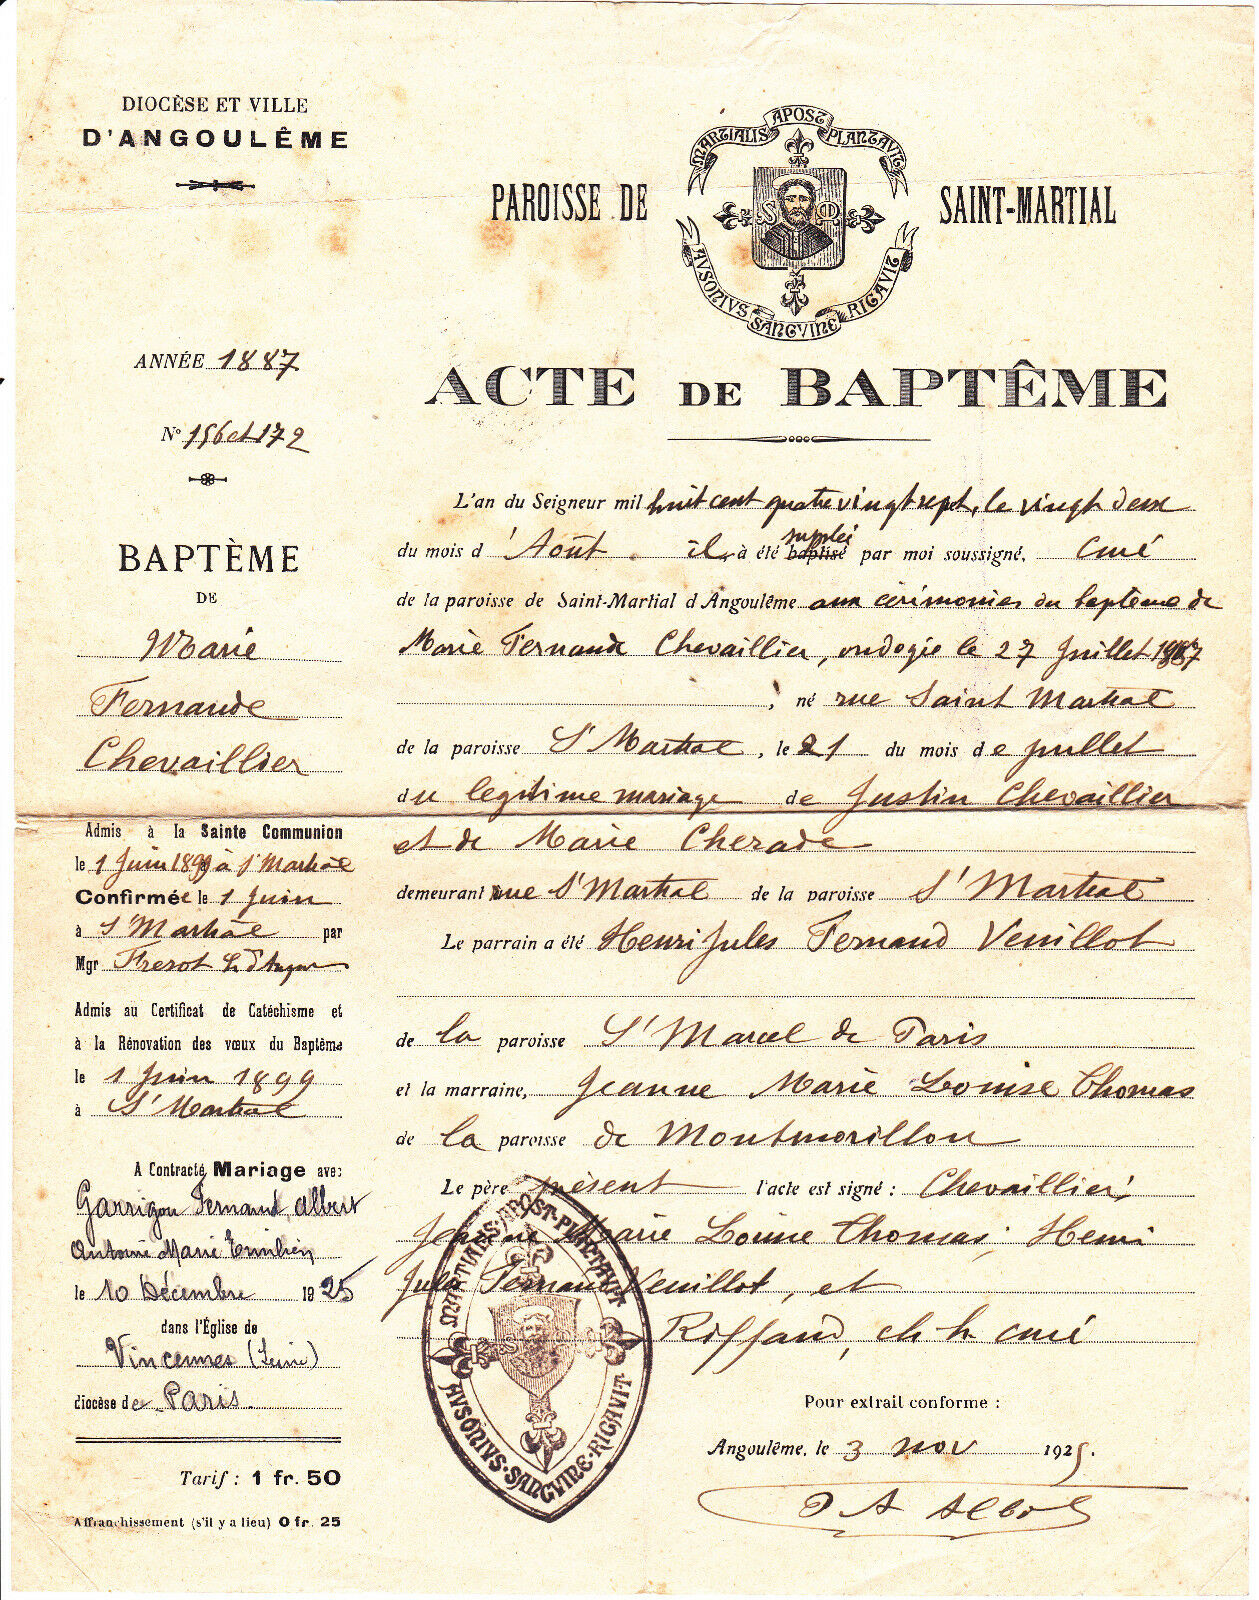 DIOCÈSE ET VILLE
D'ANGOULÊME
PAROISSE DE SAINT-MARTIAL
MARTIALIS APOST PLANTAVIT
S M
AVSONIVS SANGVINE RIGAVIT
ANNÉE 1887
N° 156 et 172
BAPTÈME
DE
Marie
Fernande
Chevaillier
Admis à la Sainte Communion
le 1 Juin 1899 à St Martial
Confirmée le 1 Juin
à St Martial par
Mgr
Admis au Certificat de Catéchisme et
à la Rénovation des vœux du Baptême
le 1 Juin 1899
à St Martial
A Contracté Mariage avec
Garrigou Fernand, Albert
Antoine Marie
le 10 Décembre 1925
dans l'Église de
Vincennes (Seine)
diocèse de Paris.
Tarif : 1 fr. 50
Affranchissement (s'il y a lieu) 0 fr. 25
ACTE DE BAPTÊME
L'an du Seigneur mil huit cent quatre vingt sept, le vingt deux
du mois d'Août il a été baptisé supplée par moi soussigné, curé
de la paroisse de Saint-Martial d'Angoulême aux cérémonies du baptême de
Marie Fernande Chevaillier, ondoyée le 27 Juillet 1887
, né rue Saint Martial
de la paroisse St Martial, le 21 du mois de juillet
du legitime mariage de Justin Chevaillier
et de Marie Cherade
demeurant rue St Martial de la paroisse St Martial
Le parrain a été Henri Jules Fernand Veuillot
de la paroisse St Marcel de Paris
et la marraine, Jeanne Marie Louise Thomas
de la paroisse de Montmorillon
Le père présent l'acte est signé : Chevaillier,
Jeanne Marie Louise Thomas, Henri
Jules Fernand Veuillot, et
Riffaud, ch. h. curé
MARTIALIS·APOST·PLANTAVIT
AVSONIVS·SANGVINE·RIGAVIT
Pour extrait conforme :
Angoulême, le 3 nov 1925.